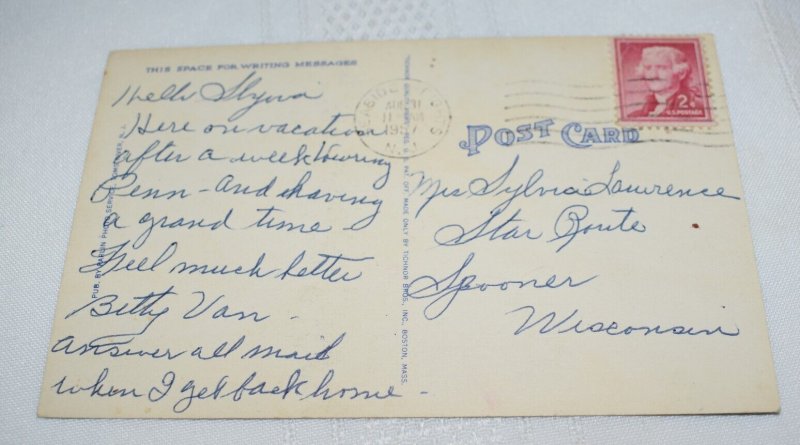 THIS SPACE FOR WRITING MESSAGES
Hello Slyvia
Here on vacation
after a week touring
Penn - and having
a grand time -
Feel much better
Betty Van -
answer all mail
when I get back home -
PUB. BY PHOTO SERVICE, N. J.
BROS., INC., BOSTON, MASS.
SIDE
AUG
195
N.J.
2¢
U.S. POSTAGE
POST CARD
Mrs Sylvia Lawrence
Star Route
Spooner
Wisconsin